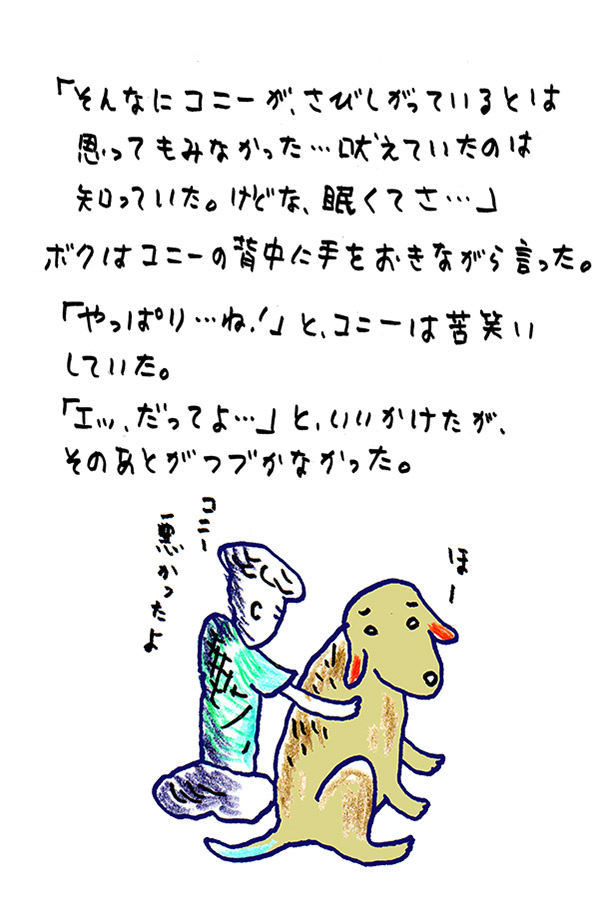 「そんなにコニーが、さびしがっているとは
思ってもみなかった…吠えていたのは
知っていた。けどな、眠くてさ…」
ボクはコニーの背中に手をおきながら言った。
「やっぱり…ね!」と、コニーは苦笑い
していた。
「エッ、だってよ…」と、いいかけたが、
そのあとがつづかなかった。
コニー
悪かったよ
ほー